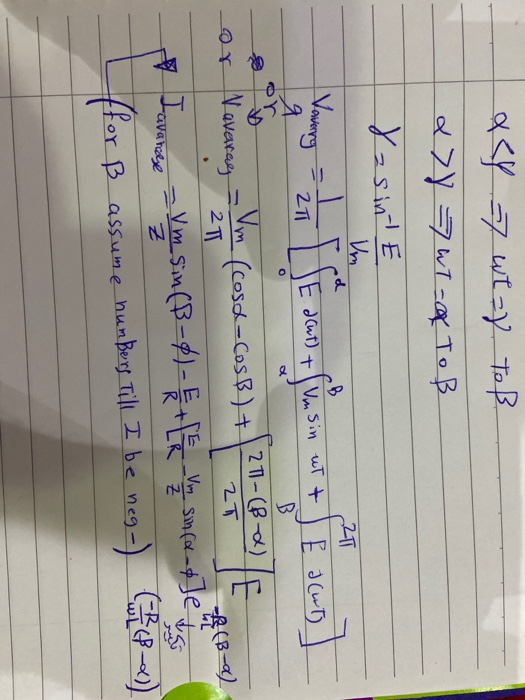 α<γ ⇒ ωT=γ To β
α>γ ⇒ ωT=α To β
γ = sin⁻¹ E/Vm
Vaverg = 1/2π [ ∫₀^α E d(ωt) + ∫_α^β Vm sin ωT + ∫_β^2π E d(ωT) ]
or
or Vavarag = Vm/2π (cosα - cosβ) + [ 2π-(β-α) / 2π ] E
Iavarage = Vm/Z sin(β-φ) - E/R + [ E/R - Vm/Z sin(α-φ ] e^-R/ωL (β-α)
(-R/ωL (β-α))
(for β assume numbers Till I be neg-)